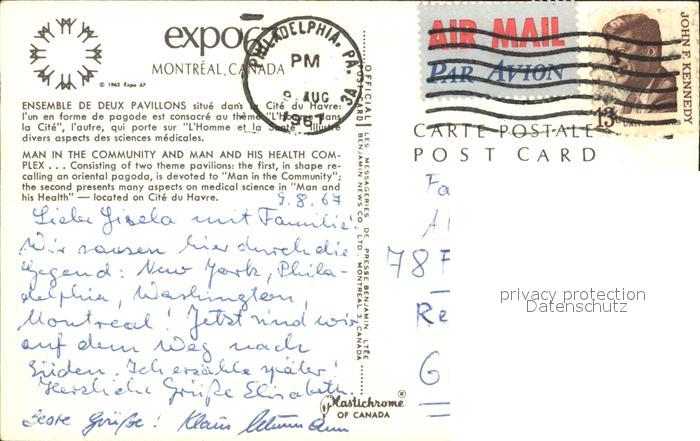 expo67
MONTRÉAL, CANADA
© 1963 Expo 67
PHILADELPHIA, PA. 3A
PM
9 AUG
1967
AIR MAIL
PAR AVION
JOHN F. KENNEDY
13c
CARTE POSTALE
POST CARD
ENSEMBLE DE DEUX PAVILLONS situé dans la Cité du Havre:
l'un en forme de pagode est consacré au thème "L'Homme dans
la Cité", l'autre, qui porte sur "L'Homme et la Santé" illustre
divers aspects des sciences médicales.
MAN IN THE COMMUNITY AND MAN AND HIS HEALTH COM-
PLEX . . . Consisting of two theme pavilions: the first, in shape re-
calling an oriental pagoda, is devoted to "Man in the Community";
the second presents many aspects on medical science in "Man and
his Health" — located on Cité du Havre.
9.8.67
Liebe Gisela mit Familie!
Wir sausen hier durch die
Gegend: New York, Phila-
delphia, Washington,
Montreal! Jetzt sind wir
auf dem Weg nach
Süden. Ich erzähle später!
Herzliche Grüße Elisabeth.
Beste Grüße! Klaus
OFFICIAL LES MESSAGERIES DE PRESSE BENJAMIN LTÉE
POST CARD BENJAMIN NEWS CO. LTD. MONTREAL 3, CANADA
Plastichrome®
OF CANADA
Fa
78 F
Re
G
privacy protection
Datenschutz